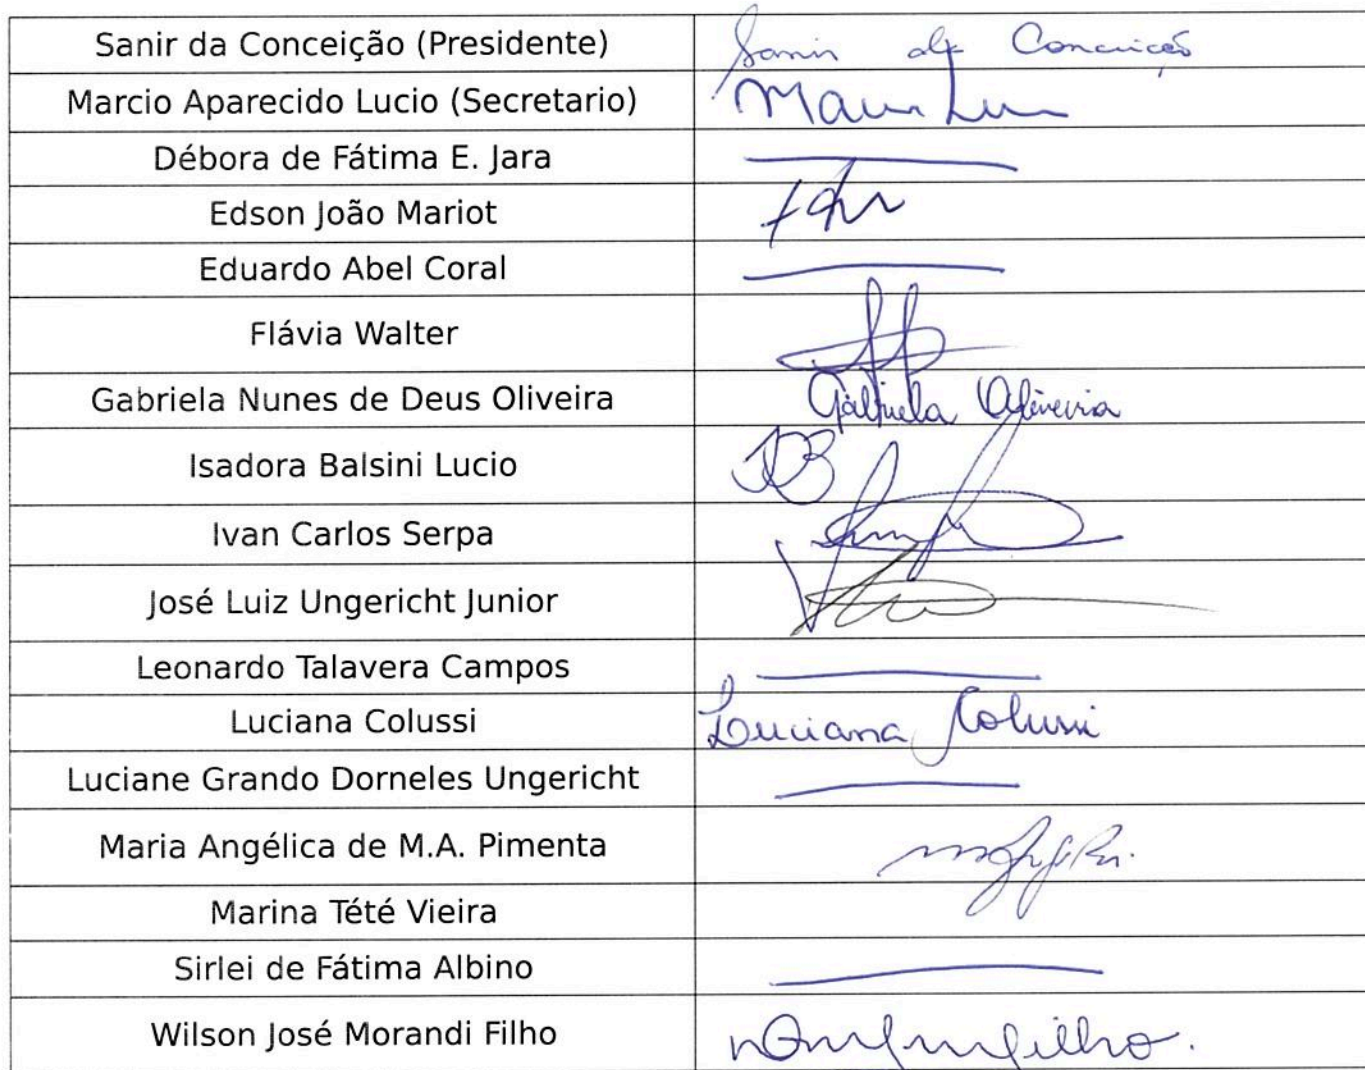 Sanir da Conceição (Presidente) Sanir da Conceição
Marcio Aparecido Lucio (Secretario)
Débora de Fátima E. Jara
Edson João Mariot
Eduardo Abel Coral
Flávia Walter
Gabriela Nunes de Deus Oliveira Gabriela Oliveira
Isadora Balsini Lucio
Ivan Carlos Serpa
José Luiz Ungericht Junior
Leonardo Talavera Campos
Luciana Colussi Luciana Colussi
Luciane Grando Dorneles Ungericht
Maria Angélica de M.A. Pimenta
Marina Tété Vieira
Sirlei de Fátima Albino
Wilson José Morandi Filho